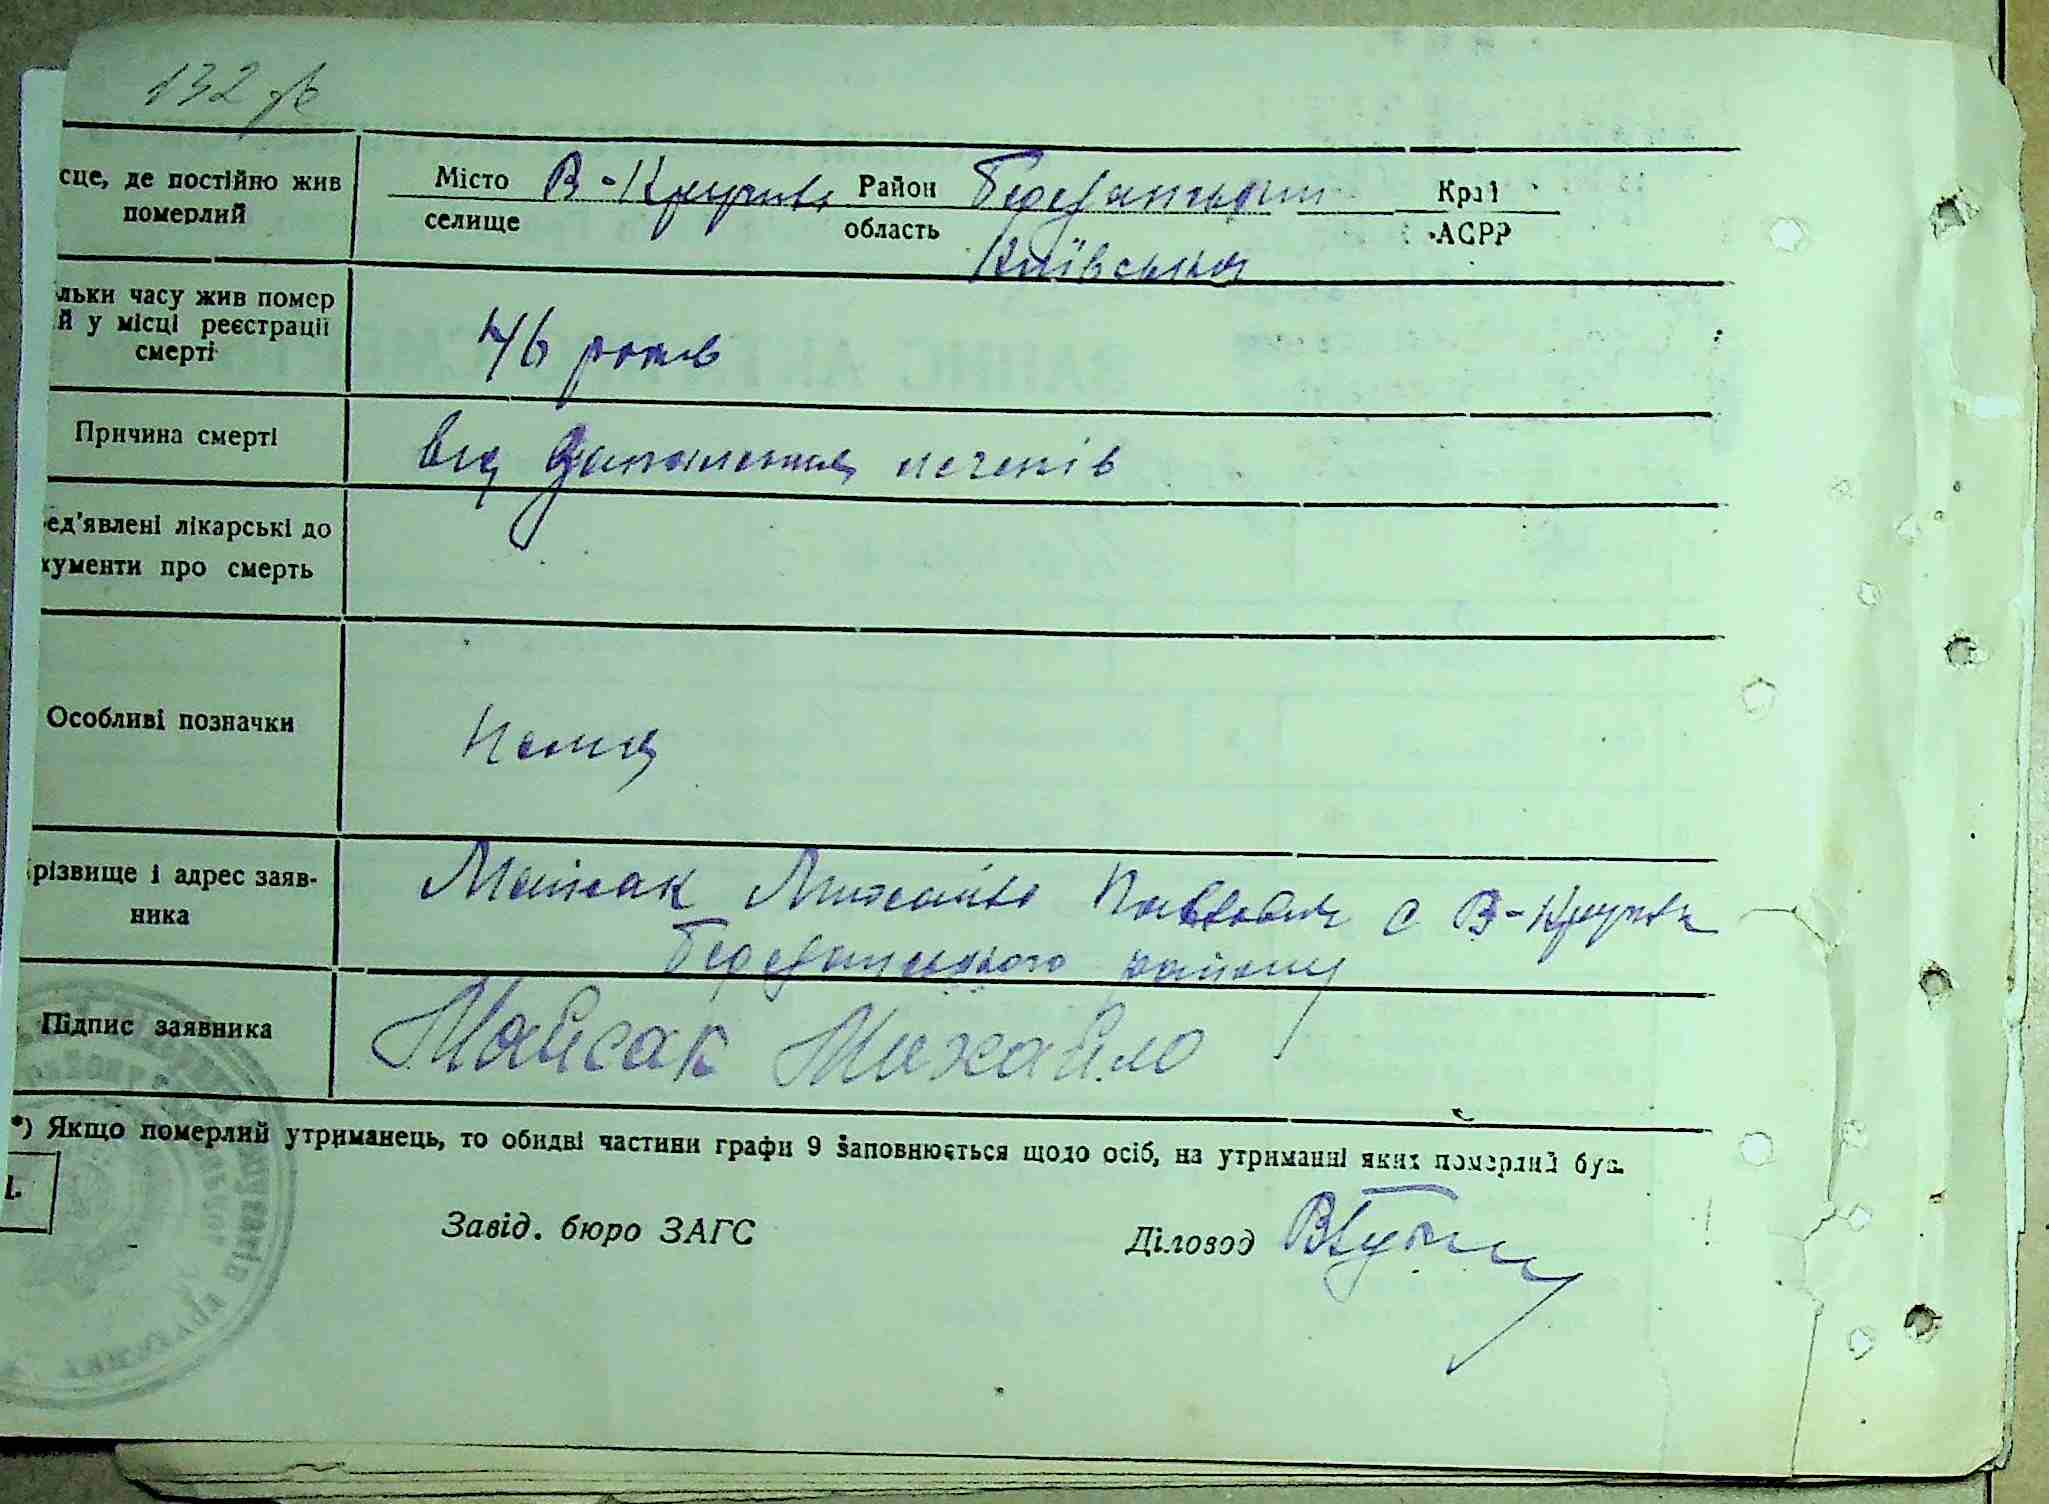 132 зв
сце, де постійно жив
померлий
Місто В-Крупіль Район Березанський Край
селище область АСРР
Київська
льки часу жив помер
й у місці реєстрації
смерті
46 років
Причина смерті
від запалення печенів
ед'явлені лікарські до
кументи про смерть
Особливі позначки
Нема
різвище і адрес заяв-
ника
Майсак Михайло Павлович с В-Крупіль
Березанського району
Підпис заявника
Майсак Михайло
*) Якщо померлий утриманець, то обидві частини графи 9 заповнюється щодо осіб, на утриманні яких померлий був.
Завід. бюро ЗАГС
Діловод